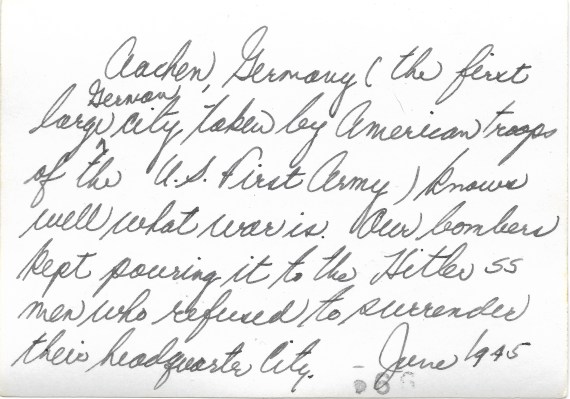 Aachen, Germany (the first
large German city, taken by American troops
of the U.S. First Army) knows
well what war is. Our bombers
kept pouring it to the Hitler SS
men who refused to surrender
their headquarter City. - June 1945